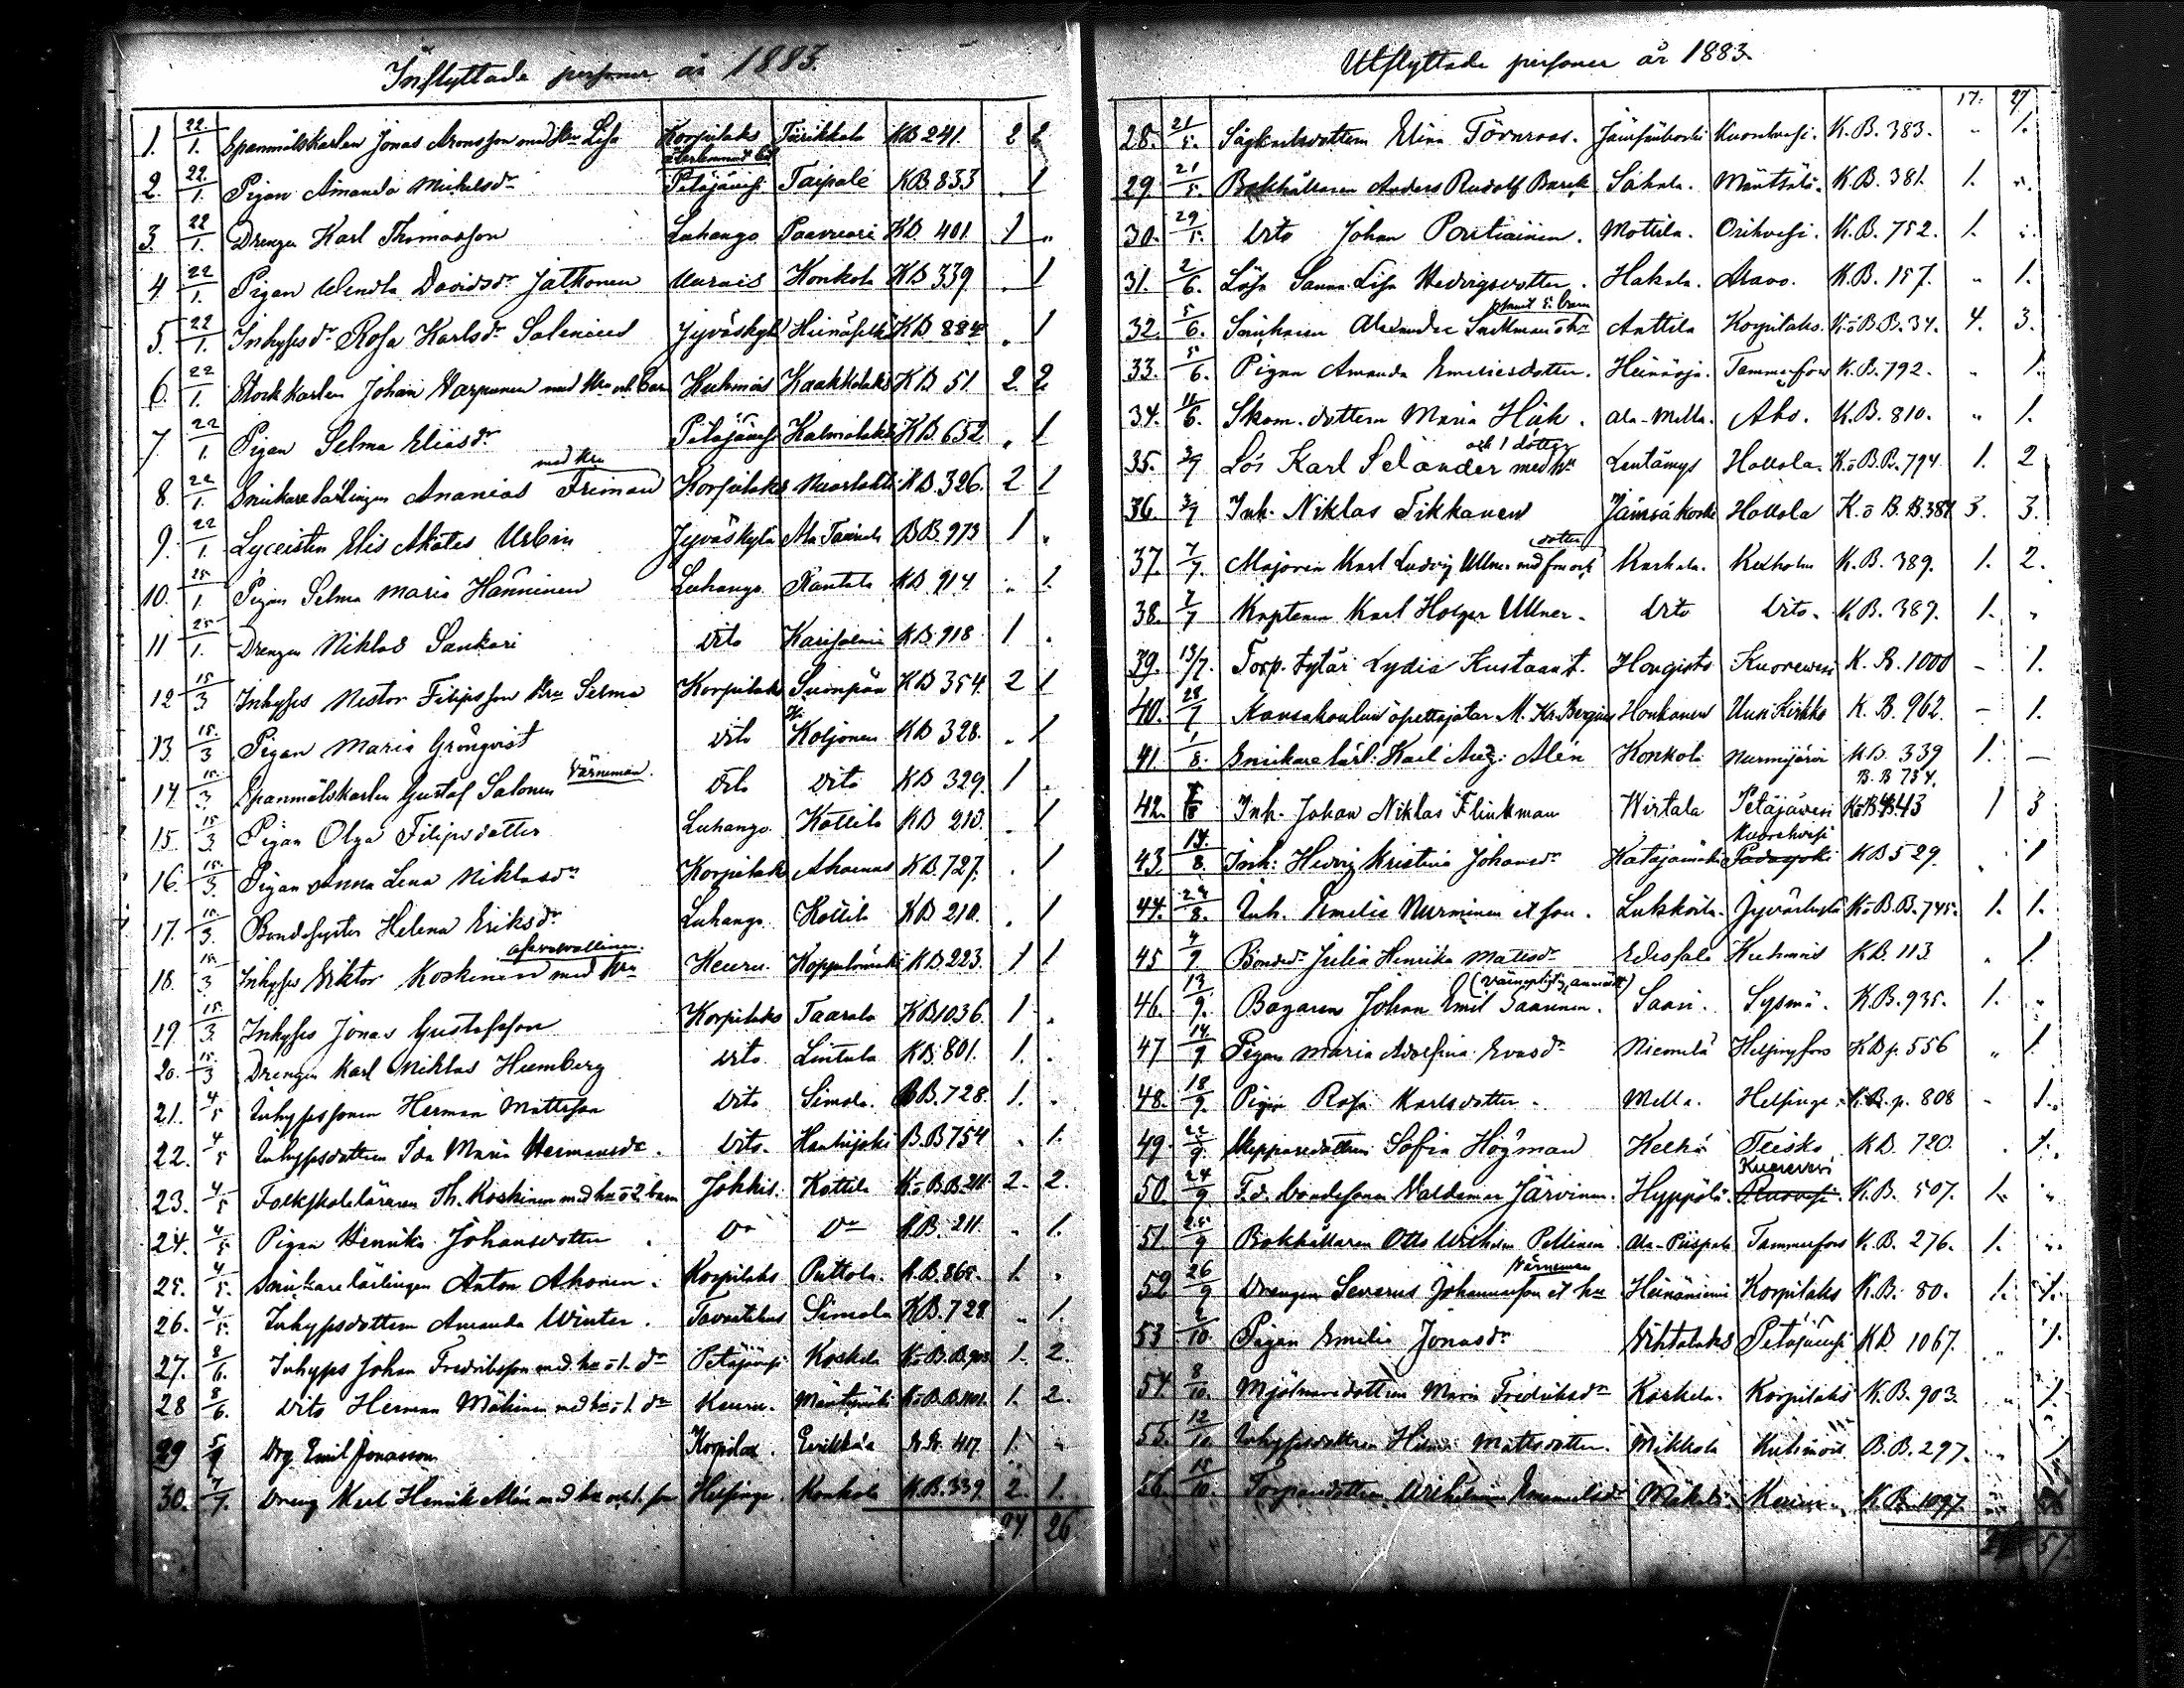 Inflyttade personer år 1883.
1. 22/1. Spanmålskarlen Jonas Aronsson med Hru Lisa Korpilaks Tiirikkala KB 241. 2 2
återkommit
2. 22/1. Pigan Amanda Mickelsdr Petäjävesi Taipale KB 833 „ 1
3. 22/1. Drengen Karl Thomasson Luhango Paavuori KB 401. 1 „
4 22/1. Pigan Wendla Davidsdr Jalkonen Uurais Konkola KB 339 „ 1
5. 22/1. Inhyses dr Rosa Karlsdr Salenius Jyväskylä KB 884 „ 1
6. 22/1. Stockkarlen Johan Varpunen med Hru och barn Kuhmois Kaakkolaks KB 51. 2. 2
7. 22/1. Pigan Selma Eliasdr Petäjävesi KB. 652 „ 1
med Hru
8. 22/1. Snickarelärlingen Ananias Friman Korpilaks KB. 326. 2 1
9. 22/1. Lyceisten Elis Akates Urbin Jyväskylä Ala BB. 973 1 „
10. 25/1. Pigan Selma Maria Hänninen Luhango Rantala KB. 914. „ 1.
11 25/1. Drengen Niklas Sankari dito KB. 918. 1 „
12 15/3 Inhyses Nestor Filipsson Hru Selma Korpilaks Suonpää KB 354. 2 1
13. 15/3 Pigan Maria Grönqvist dito Koljonen KB 328. „ 1
Värneman.
14. 15/3 Spanmålskarlen Gustaf Salonen dito dito KB 329. 1 „
15. 15/3 Pigan Olga Filipsdotter Luhango Kottila KB 210. „ 1
16. 15/3. Pigan Anna Lena Niklasdr Korpilaks Ahoenas KB. 727. „ 1
17. 15/3. Bondesyster Helena Eriksdr Luhango Kottila KB 210. „ 1
18. 15/3 Inhyses Viktor Koskinen med Hru Keuru. KB. 223. 1 1
19 15/3. Inhyses Jonas Gustafsson Korpilaks Taarala KB 1036. 1 „
20. 15/3 Drengen Karl Niklas Hemberg dito Lintula KB. 801. 1. „
21. 4/5 Inhysessonen Herman Mattsson dito Simola. BB. 728. 1. „
22. 4/5 Inhysesdottern Ida Maria Hermansdr. dito. B.B 754 „ 1.
23. 4/5 Folkskoleläraren Th. Koskinen med hu o 2 barn Jokkis. Kottila K.o B.B. 211. 2. 2.
24. 4/5 Pigan Henrika Johansdotter Do Do K.B. 211. „ 1.
25. 4/5. Snickarelärlingen Anton Ahonen. Korpilaks Puttola. K.B. 865. 1. „
26. 4/5. Inhysesdottern Amanda Winter. Tavastehus Simola K.B. 728 „ 1.
27. 8/6. Inhyses Johan Fredriksson med hu o 1. dr Petäjävesi Koskela K.o B.B. 903 1. 2.
28 8/6. dito Herman Mäkinen med hu o 1. dr Keuru. Mäntymäki K.o B.B. 1101. 1. 2.
29 5/7 Drg. Emil Jonasson Korpilax. Erikkilä K.B. 417. 1. „
30. 7/7. Dreng Karl Henrik Alén med hu och 1. son Helsinge. Konkola K.B. 339. 2. 1.
24 26
Utflyttade personer år 1883.
17. 27
28. 21/5. Elina Törnroos. K.B. 383. „ 1.
29. 21/5. Bokhållaren Anders Rudolf Barck Sahala. Mäntsälä. K.B. 381. 1. „
30. 29/5. Dito Johan Pontiainen. Mottila. Orihvesi. K.B. 752. 1. „
31. 2/6. Lösa Sanna Lisa Hedvigsdotter. Hakala. Akavo. K.B. 157. „ 1.
samt 5. barn
32. 5/6. Alexander o hu Anttila Korpilaks. K.o B.B. 34. 4. 3.
33. 5/6. Pigan Amanda Emeriedotter. Heinäoja. Tammerfors K.B. 792. „ 1.
34. 11/6. Skom. dottern Maria Häk. Ala-Mella. Abo. K.B. 810. „ 1.
och 1 dotter
35. 3/7 Lös Karl Selander med hu Lentämys Hollola. K.o B.B. 794 1. 2
36. 3/7 Inh. Niklas Tikkanen Jämsäkoski Hollola K.o B.B. 387. 3. 3.
dotter
37. 7/7. Majoren Karl Ludvig Ullner med fru och Karkala. Kexholm K.B. 389. 1. 2.
38. 7/7 Kaptenen Karl Holger Ullner. Dito Dito. K.B. 389. 1. „
39. 13/7. Torp. tytär Lydia Kustaant. Hongisto Kuorevesi K.B. 1000 – 1.
40. 28/7 Kansakoulun opettajatar M. Kr. Bergius Honkanen Uusi Kirkko K.B. 962. – 1.
41. 1/8. Snickare lärl: Karl Aug: Alén Konkola Nurmijärvi K.B. 339 1. –
B.B 754.
42. 7/8 Inh. Johan Niklas Flinkman Wirtala Petäjävesi K.o B.B. 43 1 3
Kuorehvesi
43. 14./8. Inh: Hedvig Kristina Johansdr Katajamäki Padasjoki KB 529. „ 1
44. 29/8. Inh. Emelie Nurminen et son. Lukkoila. Jyväskylä K.o B.B. 745. 1. 1.
45 4/9 Bondedr Julia Henrika Mattsdr Edessalo Kuhmois KB. 113 „ 1
(värnepligtig anmält)
46. 13/9. Bagaren Johan Emil Saarinen. Saari. Sysmä. K.B. 935. 1. „
47 14./9 Pigan Maria Adolfina Evasdr Niemelä Helsingfors KB p. 556 „ 1.
48. 18/9. Pigan Rosa Karlsdotter. Mella. Helsinge. K.B. p. 808 – 1.
49. 22/9. Skepparedottern Sofia Högman Kelkä Teisko KB. 720. „ 1.
Kuorevesi
50 24/9 F.d. bondesonen Valdemar Järvinen. Hyppölä. Ruovesi. K.B. 507. 1. „
51. 25/9 Bokhållaren Otto Wilhelm Pellinen. Ala-Piispala Tammerfors K.B. 276. 1. „
Värneman
52 26/9 Drengen Severus Johannesson et hu Heinäniemi Korpilaks K.B. 80. 1. 1.
53 6/10. Pigan Emilia Jonasdr Vihtalaks Petäjävesi KB 1067. „ 1.
54 8/10. Mjölnaredottern Maria Fredriksdr Koskela. Korpilaks K.B. 903. „ 1.
55. 12/10. Inhysesdottern Hilma Mattsdotter. Mikkola Kuhmois B.B. 297. „ 1
56. 15/10. Torparedottern Wilhelmina Emanuelsdr Mäkelä Keuru. K.B. 1097.
57.